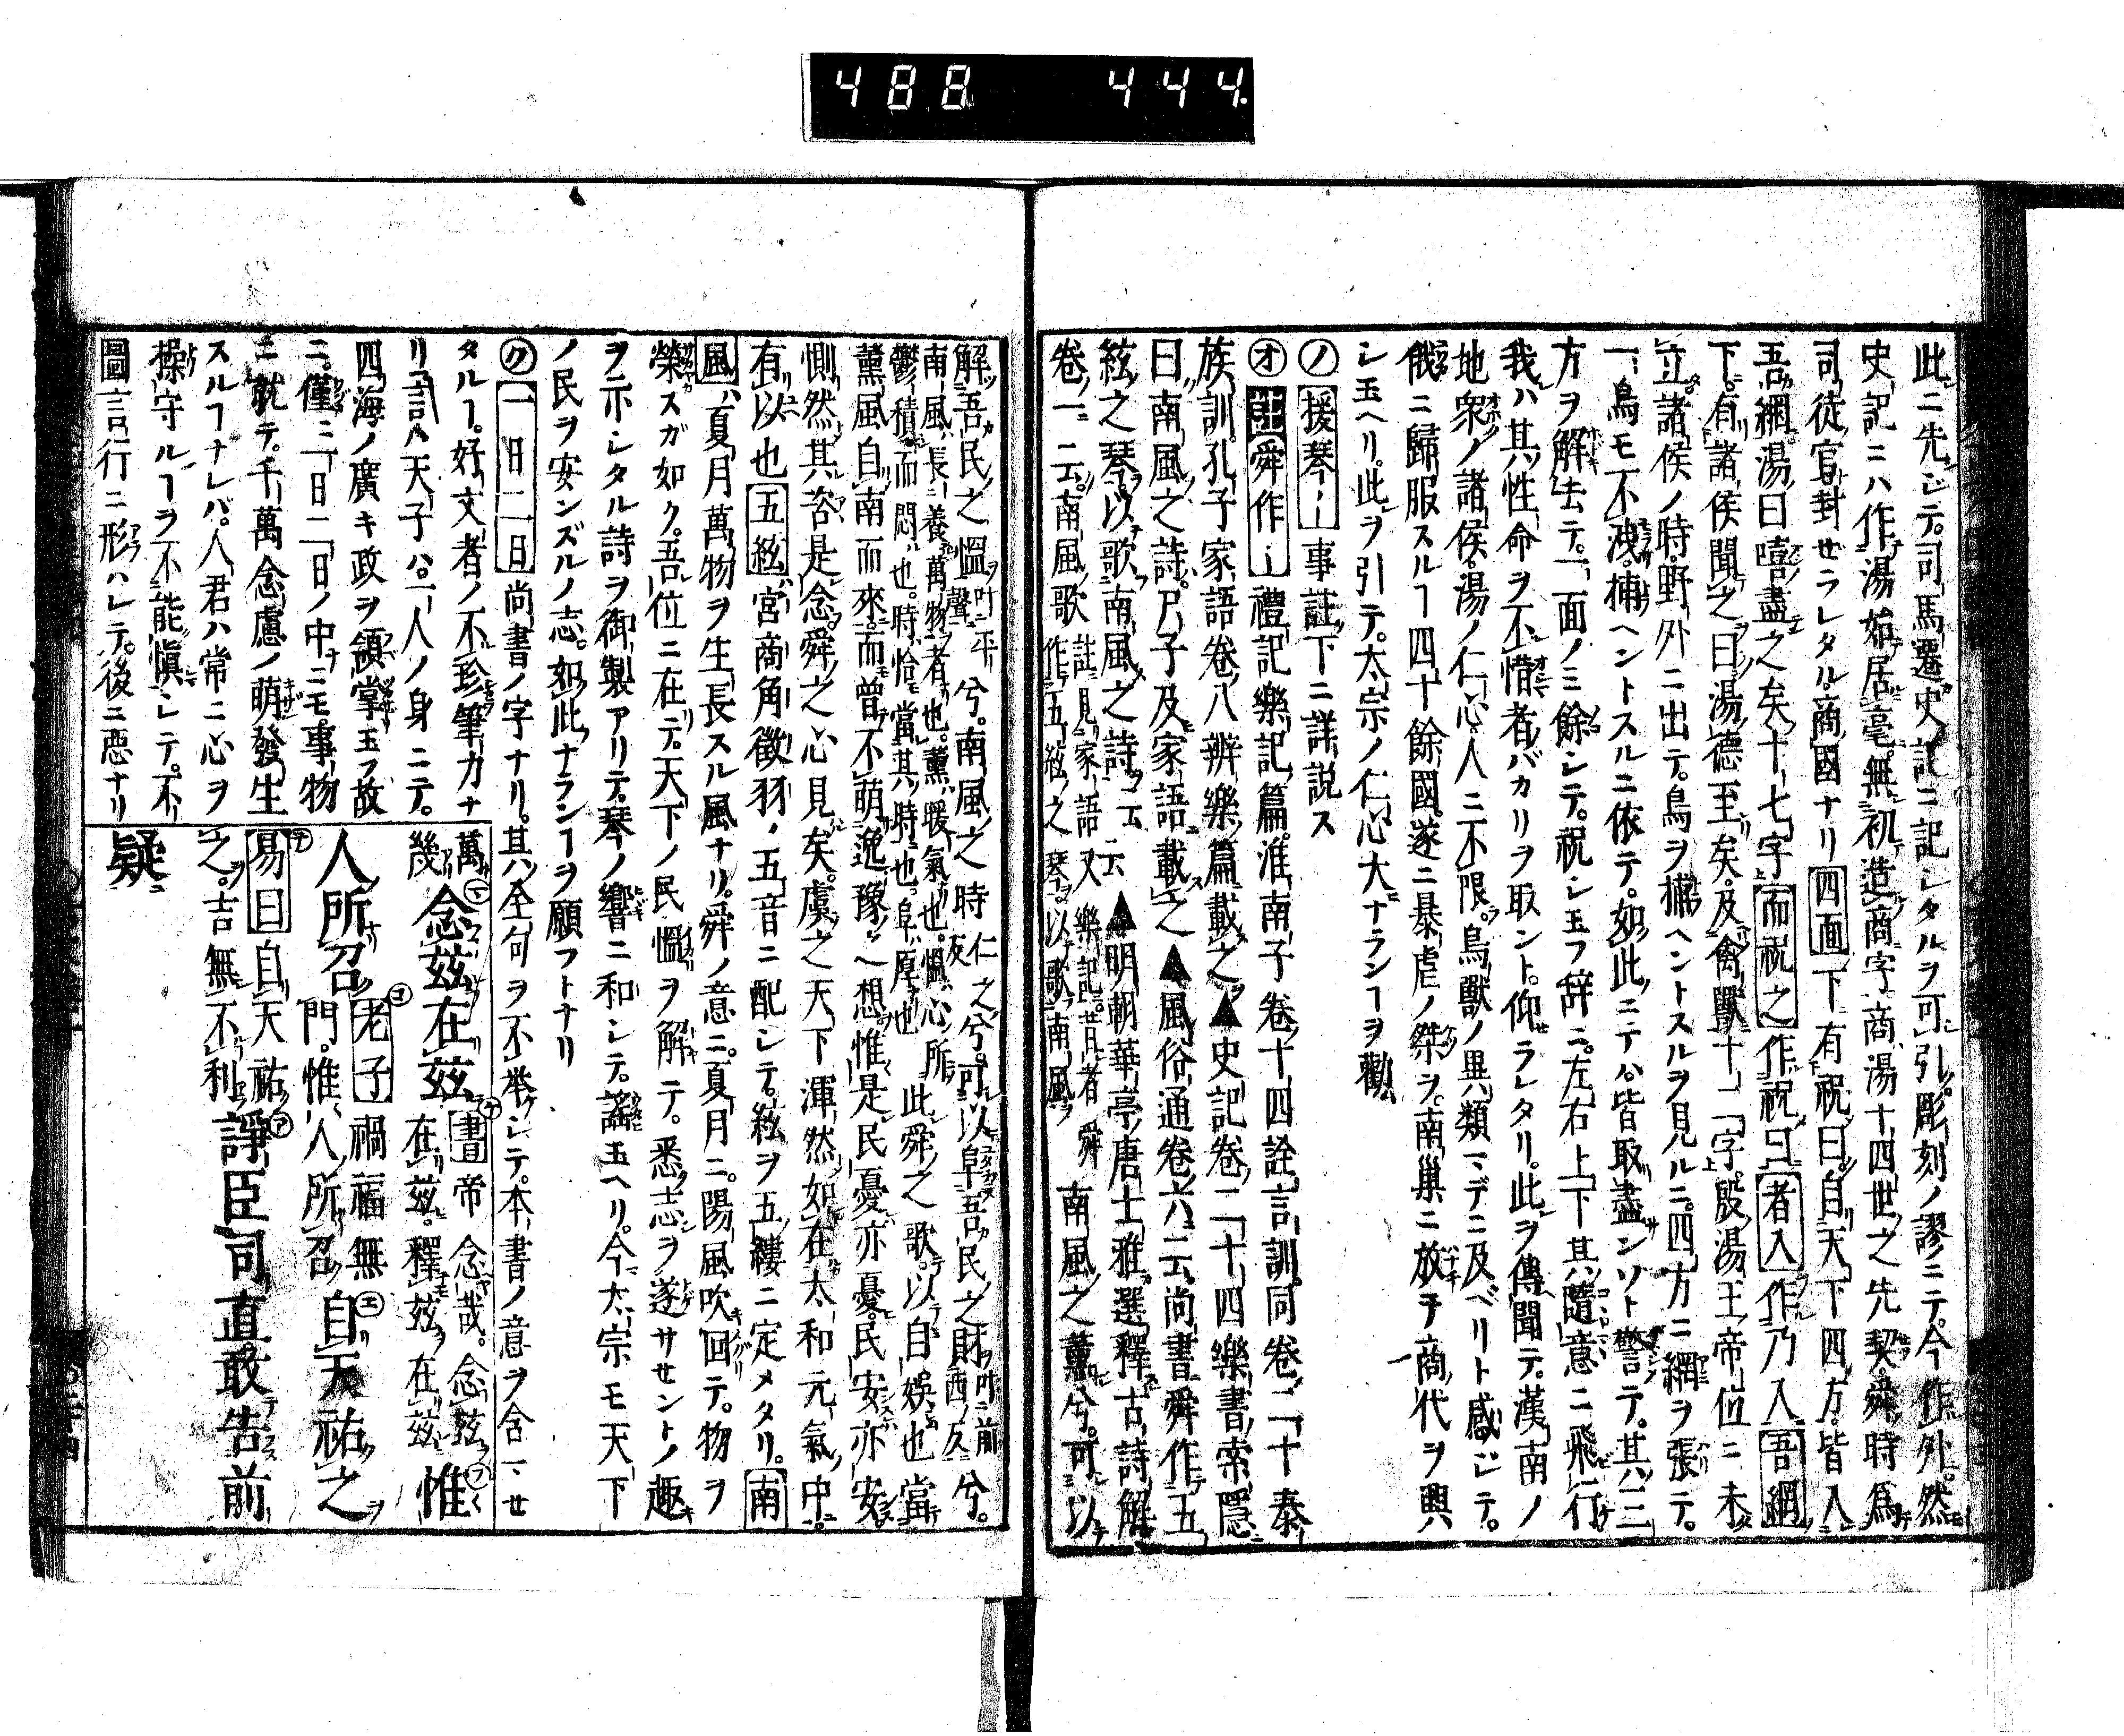 488 444
此ニ先ジテ。司馬遷史記ニ記シタルヲ可引。彫刻ノ謬ニテ。今作外。然
史記ニハ作湯始居亳。無初造商字商湯十四世之先契。舜時爲
司徒官。封ゼラレタル。商國ナリ四面下有祝曰。自天下四方。皆入
吾網湯曰嘻盡之矣十七字而祝之作祝曰者入作乃入吾網
下。有諸侯聞之曰湯德至矣。及禽獸十一字。殷湯王帝位ニ未
立諸侯ノ時。野外ニ出テ。鳥ヲ捕ヘントスルヲ見ルニ。四方ニ網ヲ張テ。
一鳥モ不洩。捕ヘントスルニ依テ。如此ニテハ。皆取盡ンゾト警テ。其三
方ヲ解去テ。一面ノミ餘シテ。祝シ玉フ辞ニ。左右上下其隨意ニ飛行
我ハ其性命ヲ不惜者バカリヲ取ント。仰ラレタリ。此ヲ傳聞テ。漢南ノ
地衆ノ諸侯。湯ノ仁心人ニ不限。鳥獸ノ異類マデニ及ベリト感ジテ。
俄ニ歸服スルヿ四十餘國。遂ニ暴虐ノ桀ヲ。南巢ニ放チ商代ヲ興
シ玉ヘリ。此ヲ引テ。太宗ノ仁心大ナランヿヲ勸
ノ援琴ー事註下ニ詳說ス
オ註舜作ー禮記樂記篇。淮南子卷十四詮言訓。同卷二十泰
族訓。孔子家語卷八辨樂篇載之▲史記卷二十四樂書索隱
曰。南風之詩。尸子及家語載之▲風俗通卷六云。尚書舜作五
絃之琴。以歌南風之詩云云▲明朝華亭唐士雅選釋古詩解
卷一云。南風歌註見家語又樂記。昔者舜作五絃之琴。以歌南風南風之薰兮。可以
解吾民之慍叶平聲兮。南風之時仁之反兮。可以阜吾民之財叶前西反兮。
南風長養萬物者也。薰暖氣也。慍心所鬱積而悶也。時恰當其時也。阜厚也此舜之歌。以自娯也當
薰風自南而來。而曾不萌逸豫之想。惟是民憂亦憂。民安亦安。
惻然其咨是念。舜之心見矣。虞之天下渾然如在太和元氣中。
有以也五絃宮商角徵羽ノ五音ニ配シテ。絃ヲ五縷ニ定メタリ。南
風夏月萬物ヲ生長スル風ナリ。舜ノ意ニ。夏月ニ。陽風吹回テ。物ヲ
榮スガ如ク。吾位ニ在テ。天下ノ民慍ヲ解テ。悉志ヲ遂サセントノ趣
ヲ示シタル詩ヲ御製アリテ。琴ノ響ニ和シテ。謠玉ヘリ。今太宗モ天下
ノ民ヲ安ンズルノ志。如此ナランヿヲ願フトナリ
ク一日二日尚書ノ字ナリ。其全句ヲ不挙シテ。本書ノ意ヲ含マセ
タルヿ。好文者ノ不珍筆力ナ
リ言ハ天子ハ。一人ノ身ニテ。
四海ノ廣キ政ヲ領掌玉フ故
ニ。僅ニ一日二日ノ中ニモ。事物
ニ就テ。千萬念慮ノ萌發生
スルヿナレバ。人君ハ常ニ心ヲ
操守ルヿヲ不能愼シテ。不
圖言行ニ形ハレテ。後ニ悪ナリ
萬幾念茲在茲書帝念哉。念茲在茲。釋茲在茲惟
人所召老子禍福無門。惟人所召自天祐之
易曰自天祐之。吉無不利諍臣司直。敢告前
疑